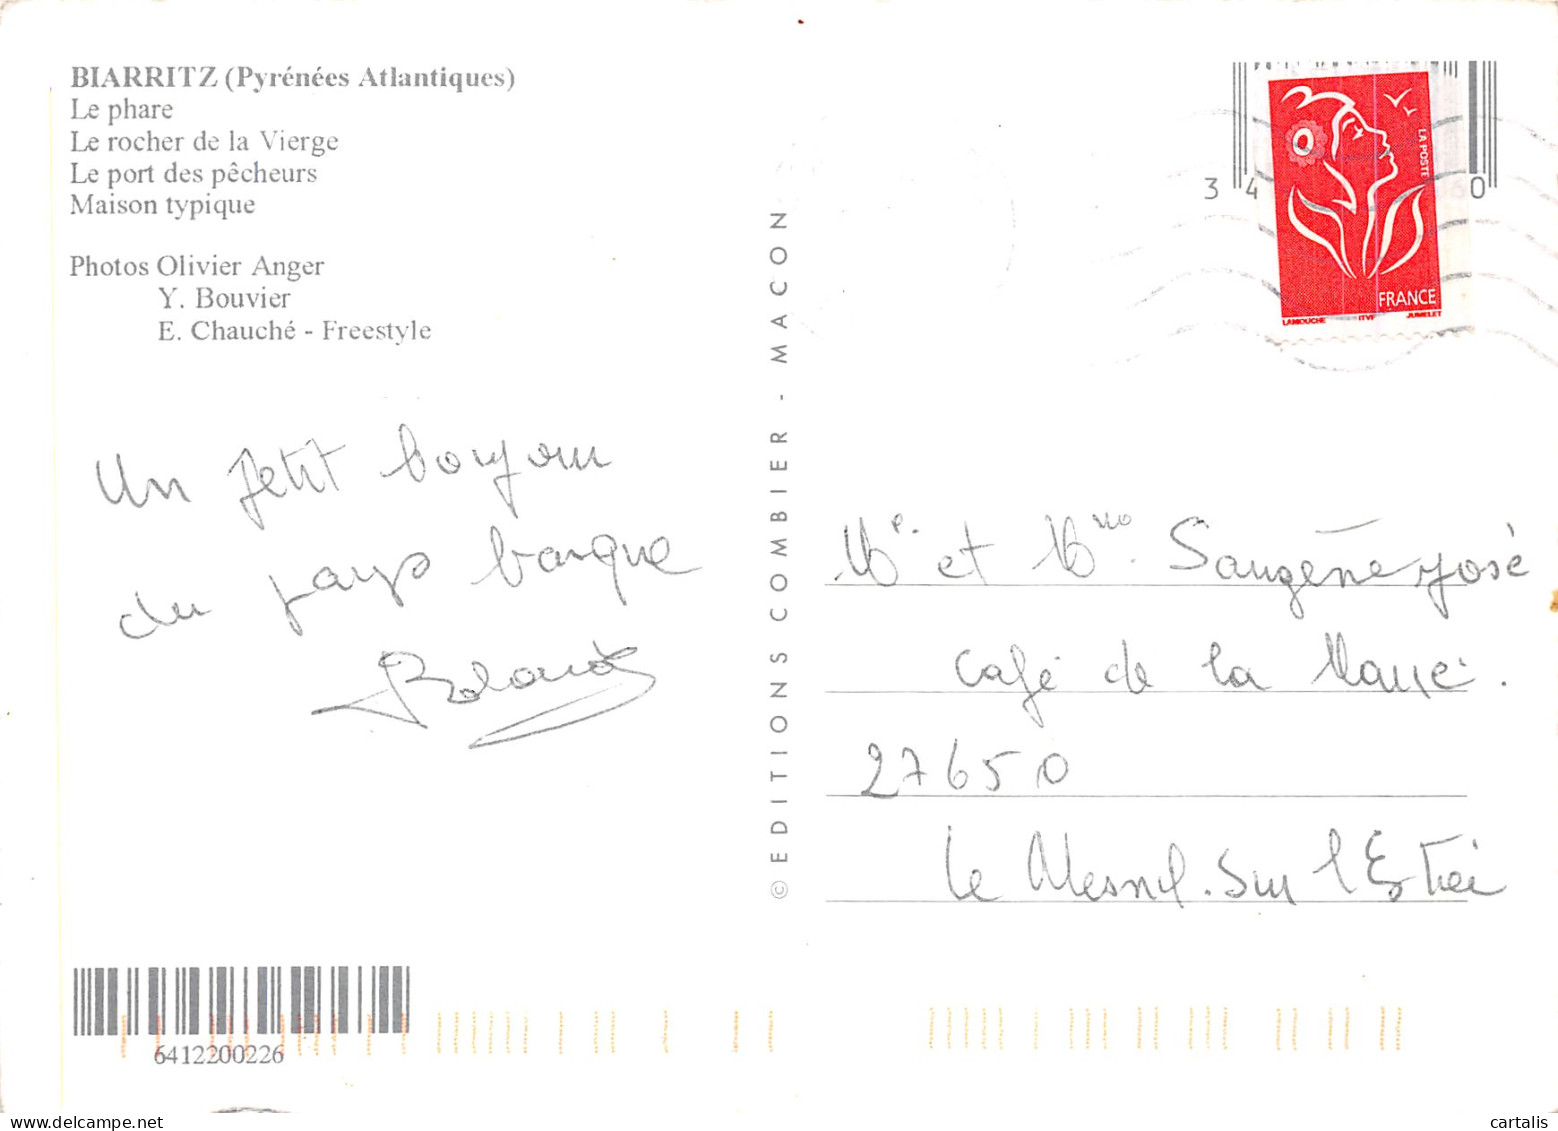 BIARRITZ (Pyrénées Atlantiques)
Le phare
Le rocher de la Vierge
Le port des pêcheurs
Maison typique
Photos Olivier Anger
Y. Bouvier
E. Chauché - Freestyle
Un petit bonjour
du pays basque
Roland
6412200226
© EDITIONS COMBIER - MACON
3 4 60
LA POSTE
FRANCE
LAMOUCHE ITVF JUMELET
Mr. et Mme. Saugène José
Café de la Mairie.
27650
Le Mesnil-sur l'Estrée
www.delcampe.net
cartalis